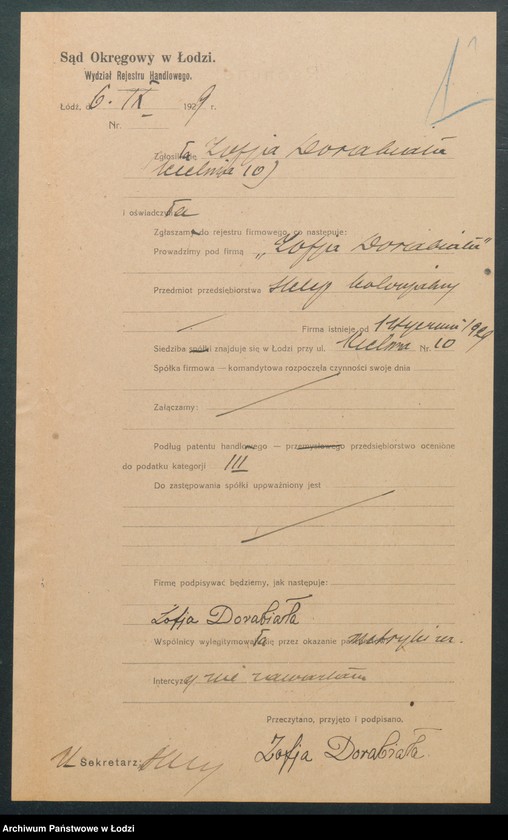 1
Sąd Okręgowy w Łodzi.
Wydział Rejestru Handlowego.
Łódź, d. 6. IX 1929 r.
Nr.
Zgłosiła się Zofja Dorabiała
Kielma 10)
i oświadczyła
Zgłaszamy do rejestru firmowego, co następuje:
Prowadzimy pod firmą „Zofja Dorabiała"
Przedmiot przedsiębiorstwa sklep kolonjalny
Firma istnieje od 1 stycznia 1929
Siedziba spółki znajduje się w Łodzi przy ul. Kielma Nr. 10
Spółka firmowa — komandytowa rozpoczęła czynności swoje dnia
Załączamy:
Podług patentu handlowego — przemysłowego przedsiębiorstwo ocenione
do podatku kategorji III
Do zastępowania spółki uppważniony jest
Firmę podpisywać będziemy, jak następuje:
Zofja Dorabiała
Wspólnicy wylegitymowała się przez okazanie metryki ur.
Intercyzy nie zawarłam
Przeczytano, przyjęto i podpisano.
Zofja Dorabiała.
Sekretarz:
Archiwum Państwowe w Łodzi